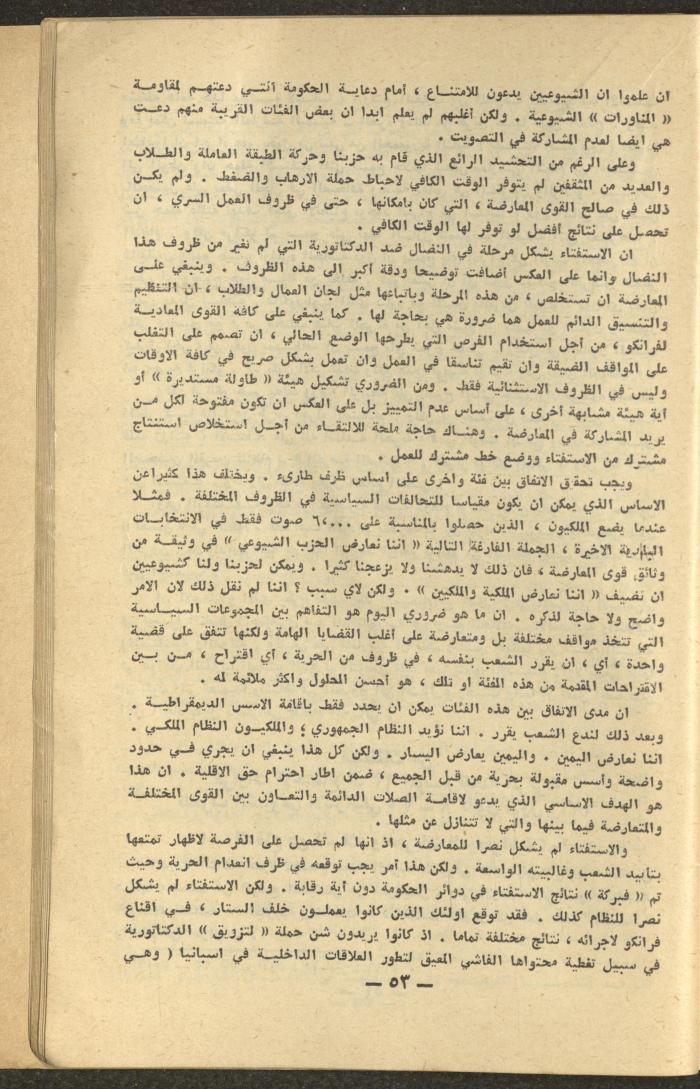 ان علموا ان الشيوعيين يدعون للامتناع ، أمام دعاية الحكومة التي دعتهم لمقاومة
« المناورات » الشيوعية . ولكن أغلبهم لم يعلم ابدا ان بعض الفئات القريبة منهم دعت
هي ايضا لعدم المشاركة في التصويت .
وعلى الرغم من التحشيد الرائع الذي قام به حزبنا وحركة الطبقة العاملة والطلاب
والعديد من المثقفين لم يتوفر الوقت الكافي لاحباط حملة الارهاب والضغط . ولم يكن
ذلك في صالح القوى المعارضة ، التي كان بامكانها ، حتى في ظروف العمل السري ، ان
تحصل على نتائج أفضل لو توفر لها الوقت الكافي .
ان الاستفتاء يشكل مرحلة في النضال ضد الدكتاتورية التي لم تغير من ظروف هذا
النضال وانما على العكس أضافت توضيحا ودقة أكبر الى هذه الظروف . وينبغي على
المعارضة ان تستخلص ، من هذه المرحلة وباتباعها مثل لجان العمال والطلاب ، ان التنظيم
والتنسيق الدائم للعمل هما ضرورة هي بحاجة لها . كما ينبغي على كافة القوى المعادية
لفرانكو ، من أجل استخدام الفرص التي يطرحها الوضع الحالي ، ان تصمم على التغلب
على المواقف الضيقة وان تقيم تناسقا في العمل وان تعمل بشكل صريح في كافة الاوقات
وليس في الظروف الاستثنائية فقط . ومن الضروري تشكيل هيئة « طاولة مستديرة » أو
أية هيئة مشابهة أخرى ، على أساس عدم التمييز بل على العكس ان تكون مفتوحة لكل من
يريد المشاركة في المعارضة . وهناك حاجة ملحة للالتقاء من أجل استخلاص استنتاج
مشترك من الاستفتاء ووضع خط مشترك للعمل .
ويجب تحقيق الاتفاق بين فئة واخرى على أساس ظرف طارىء . ويختلف هذا كثيرا عن
الاساس الذي يمكن ان يكون مقياسا للتحالفات السياسية في الظروف المختلفة . فمثلا
عندما يضع الملكيون ، الذين حصلوا بالمناسبة على ٦٠،٠٠٠ صوت فقط في الانتخابات
البلدية الاخيرة ، الجملة الفارغة التالية « اننا نعارض الحزب الشيوعي » في وثيقة من
وثائق قوى المعارضة ، فان ذلك لا يدهشنا ولا يزعجنا كثيرا . ويمكن لحزبنا ولنا كشيوعيين
ان نضيف « اننا نعارض الملكية والملكيين » . ولكن لاي سبب ؟ اننا لم نقل ذلك لان الامر
واضح ولا حاجة لذكره . ان ما هو ضروري اليوم هو التفاهم بين المجموعات السياسية
التي تتخذ مواقف مختلفة بل ومتعارضة على أغلب القضايا الهامة ولكنها تتفق على قضية
واحدة ، أي ، ان يقرر الشعب بنفسه ، في ظروف من الحرية ، أي اقتراح ، من بين
الاقتراحات المقدمة من هذه الفئة او تلك ، هو أحسن الحلول واكثر ملائمة له .
ان مدى الاتفاق بين هذه الفئات يمكن ان يحدد فقط باقامة الاسس الديمقراطية .
وبعد ذلك لندع الشعب يقرر . اننا نؤيد النظام الجمهوري ؛ والملكيون النظام الملكي .
اننا نعارض اليمين . واليمين يعارض اليسار . ولكن كل هذا ينبغي ان يجري في حدود
واضحة وأسس مقبولة بحرية من قبل الجميع ، ضمن اطار احترام حق الاقلية . ان هذا
هو الهدف الاساسي الذي يدعو لاقامة الصلات الدائمة والتعاون بين القوى المختلفة
والمتعارضة فيما بينها والتي لا تتنازل عن مثلها .
والاستفتاء لم يشكل نصرا للمعارضة ، اذ انها لم تحصل على الفرصة لاظهار تمتعها
بتأييد الشعب وغالبيته الواسعة . ولكن هذا أمر يجب توقعه في ظرف انعدام الحرية وحيث
تم « فبركة » نتائج الاستفتاء في دوائر الحكومة دون أية رقابة . ولكن الاستفتاء لم يشكل
نصرا للنظام كذلك . فقد توقع اولئك الذين كانوا يعملون خلف الستار ، في اقناع
فرانكو لاجرائه ، نتائج مختلفة تماما . اذ كانوا يريدون شن حملة « لتزويق » الدكتاتورية
في سبيل تغطية محتواها الفاشي المعيق لتطور العلاقات الداخلية في اسبانيا ( وهي
— ٥٣ —